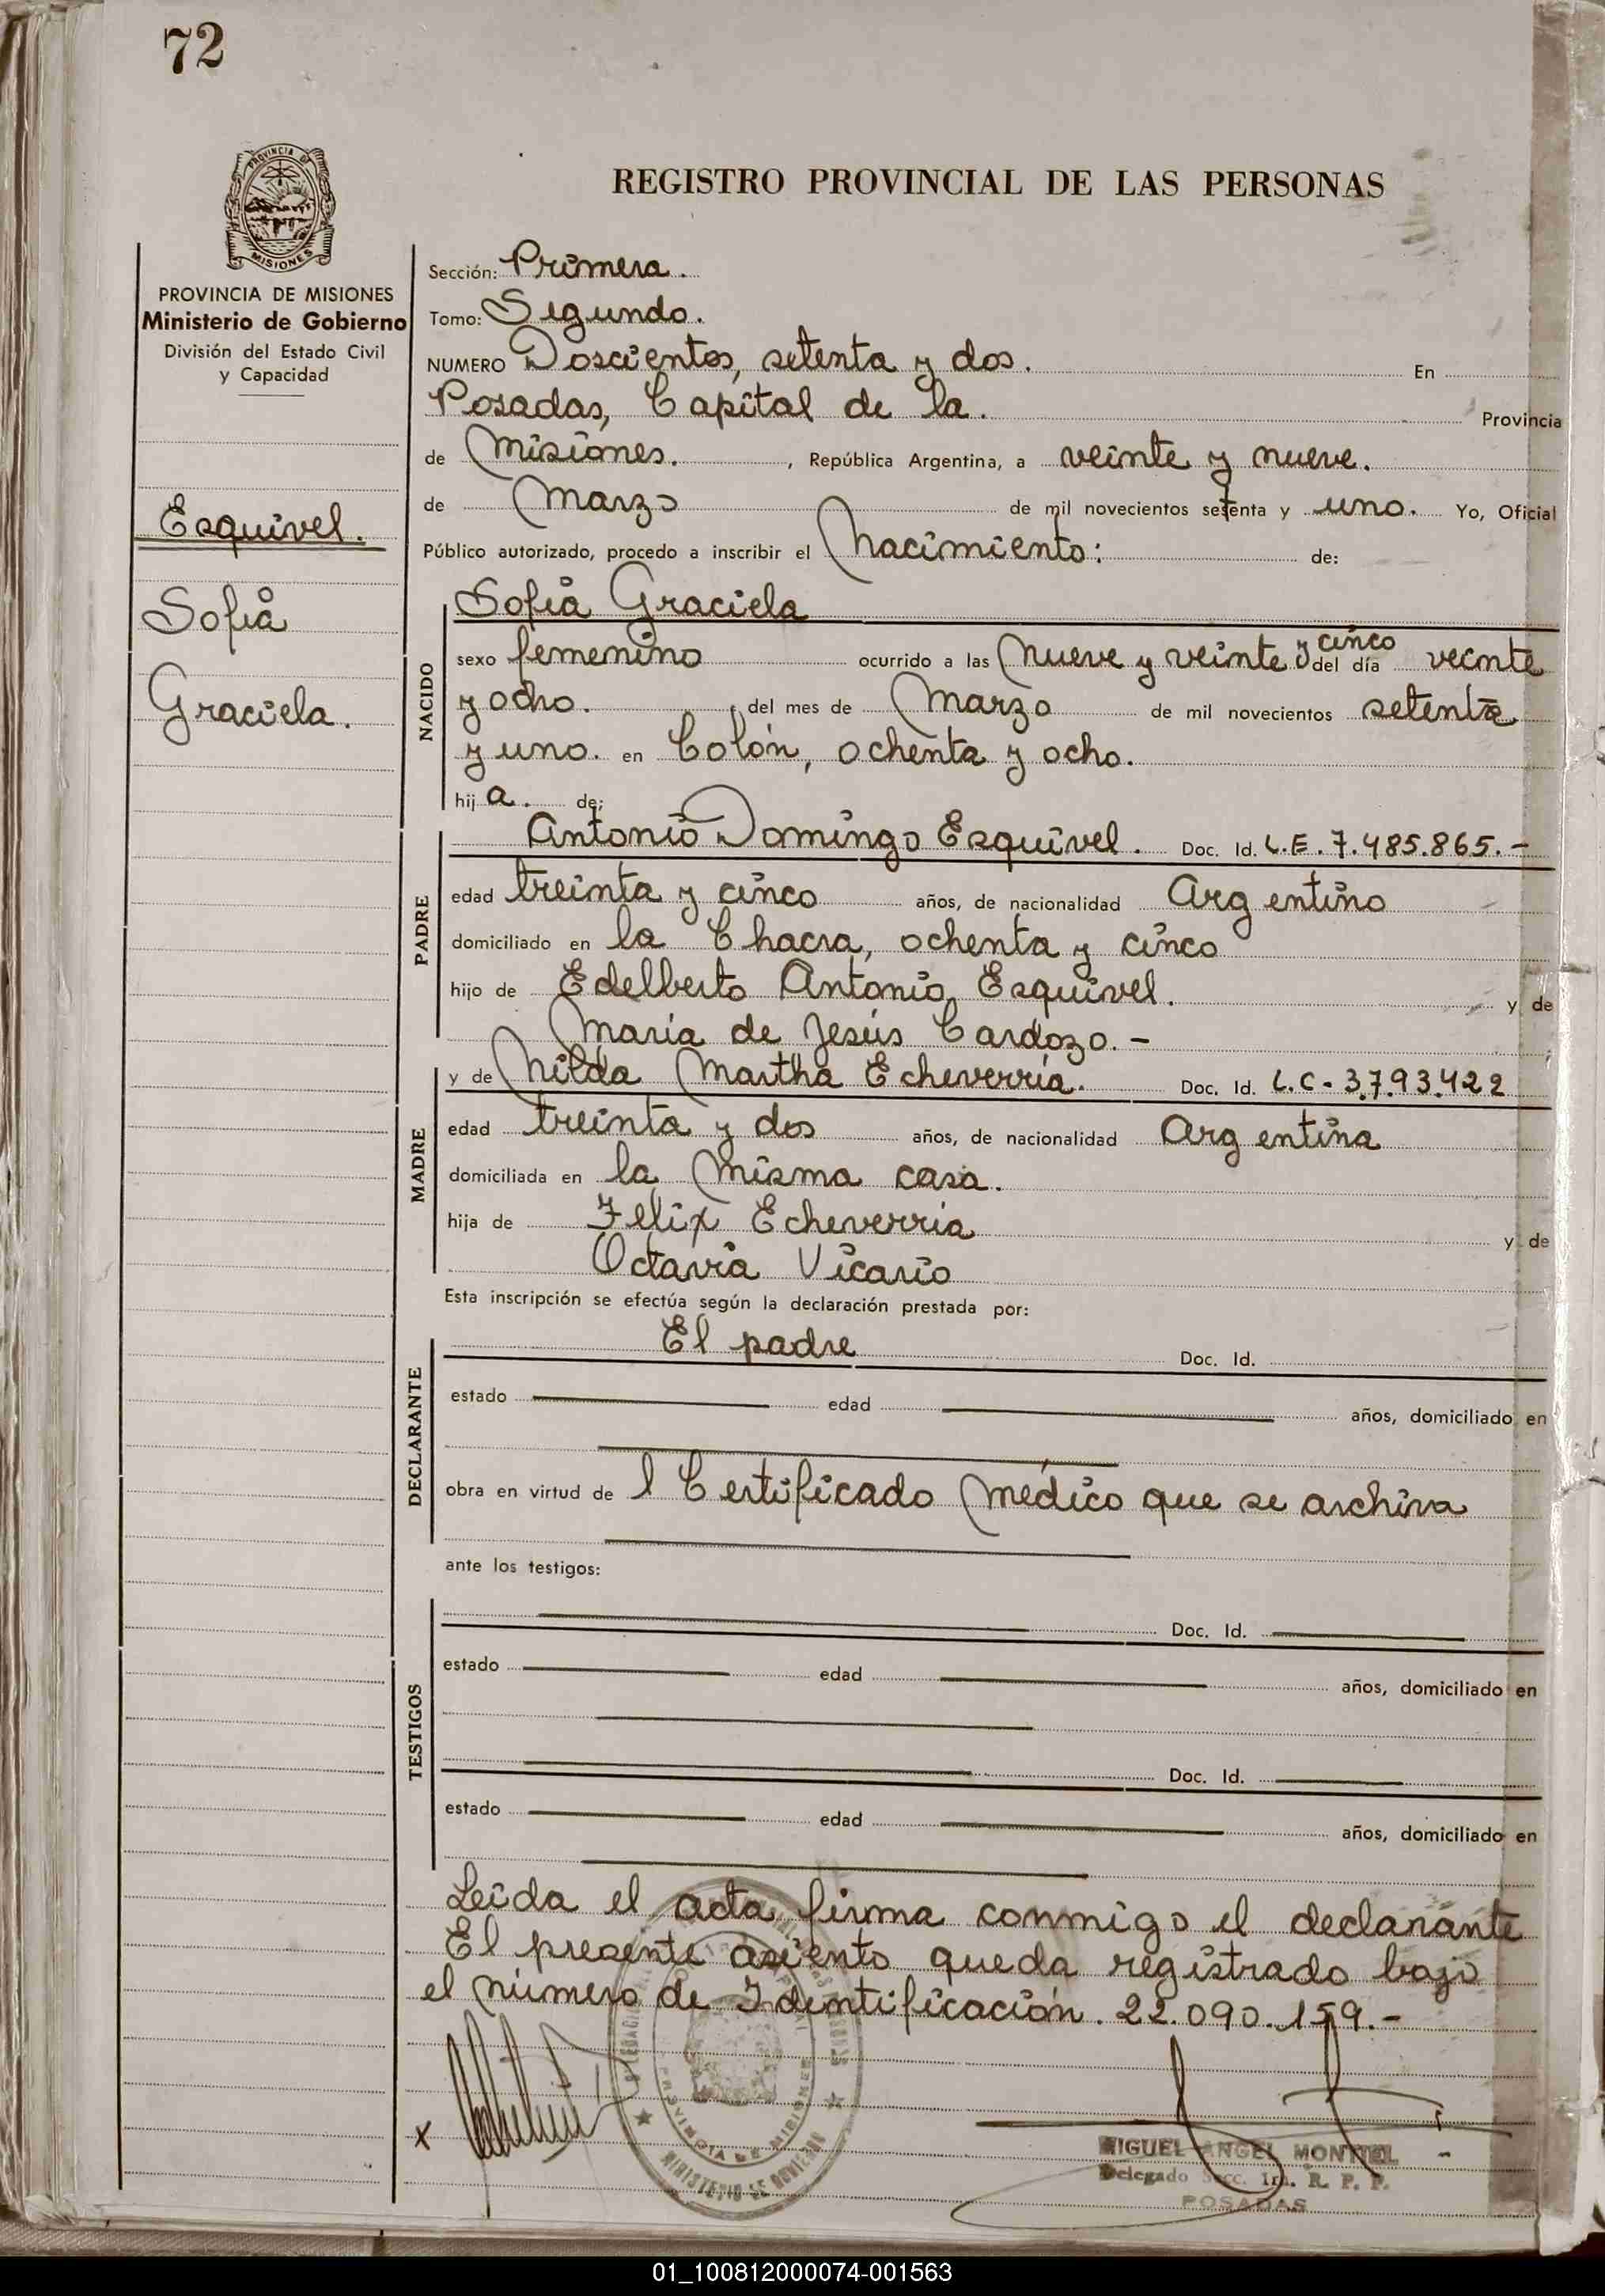 72
PROVINCIA DE
MISIONES
PROVINCIA DE MISIONES
Ministerio de Gobierno
División del Estado Civil
y Capacidad
Esquivel.
Sofia
Graciela.
REGISTRO PROVINCIAL DE LAS PERSONAS
Sección: Primera.
Tomo: Segundo.
NUMERO Doscientos, setenta y dos. En
Posadas, Capital de la. Provincia
de Misiones. , República Argentina, a veinte y nueve.
de Marzo de mil novecientos setenta y uno. Yo, Oficial
Público autorizado, procedo a inscribir el Nacimiento: de:
NACIDO
Sofia Graciela
sexo femenino ocurrido a las Nueve y veinte y cinco del día veinte
y ocho. del mes de Marzo de mil novecientos setenta
y uno. en Colón, ochenta y ocho.
hij a. de:
PADRE
Antonio Domingo Esquivel. Doc. Id. L.E. 7.485.865.-
edad treinta y cinco años, de nacionalidad Argentino
domiciliado en la Chacra, ochenta y cinco
hijo de Edelberto Antonio Esquivel. y de
María de Jesús Cardozo.-
MADRE
y de Nilda Martha Echeverría. Doc. Id. L.C- 3.793.422
edad treinta y dos años, de nacionalidad Argentina
domiciliada en la misma casa.
hija de Felix Echeverría y de
Octavia Vicario
Esta inscripción se efectúa según la declaración prestada por:
DECLARANTE
El padre Doc. Id.
estado edad años, domiciliado en
obra en virtud de l Certificado Médico que se archiva
ante los testigos:
TESTIGOS
Doc. Id.
estado edad años, domiciliado en
Doc. Id.
estado edad años, domiciliado en
Leída el acta firma conmigo el declarante
El presente asiento queda registrado bajo
el número de Identificación. 22.090.159.-
x
PROVINCIA DE MISIONES
MINISTERIO DE GOBIERNO
MIGUEL ANGEL MONTIEL
Delegado Secc. 1ra. R. P. P.
POSADAS
01_100812000074-001563